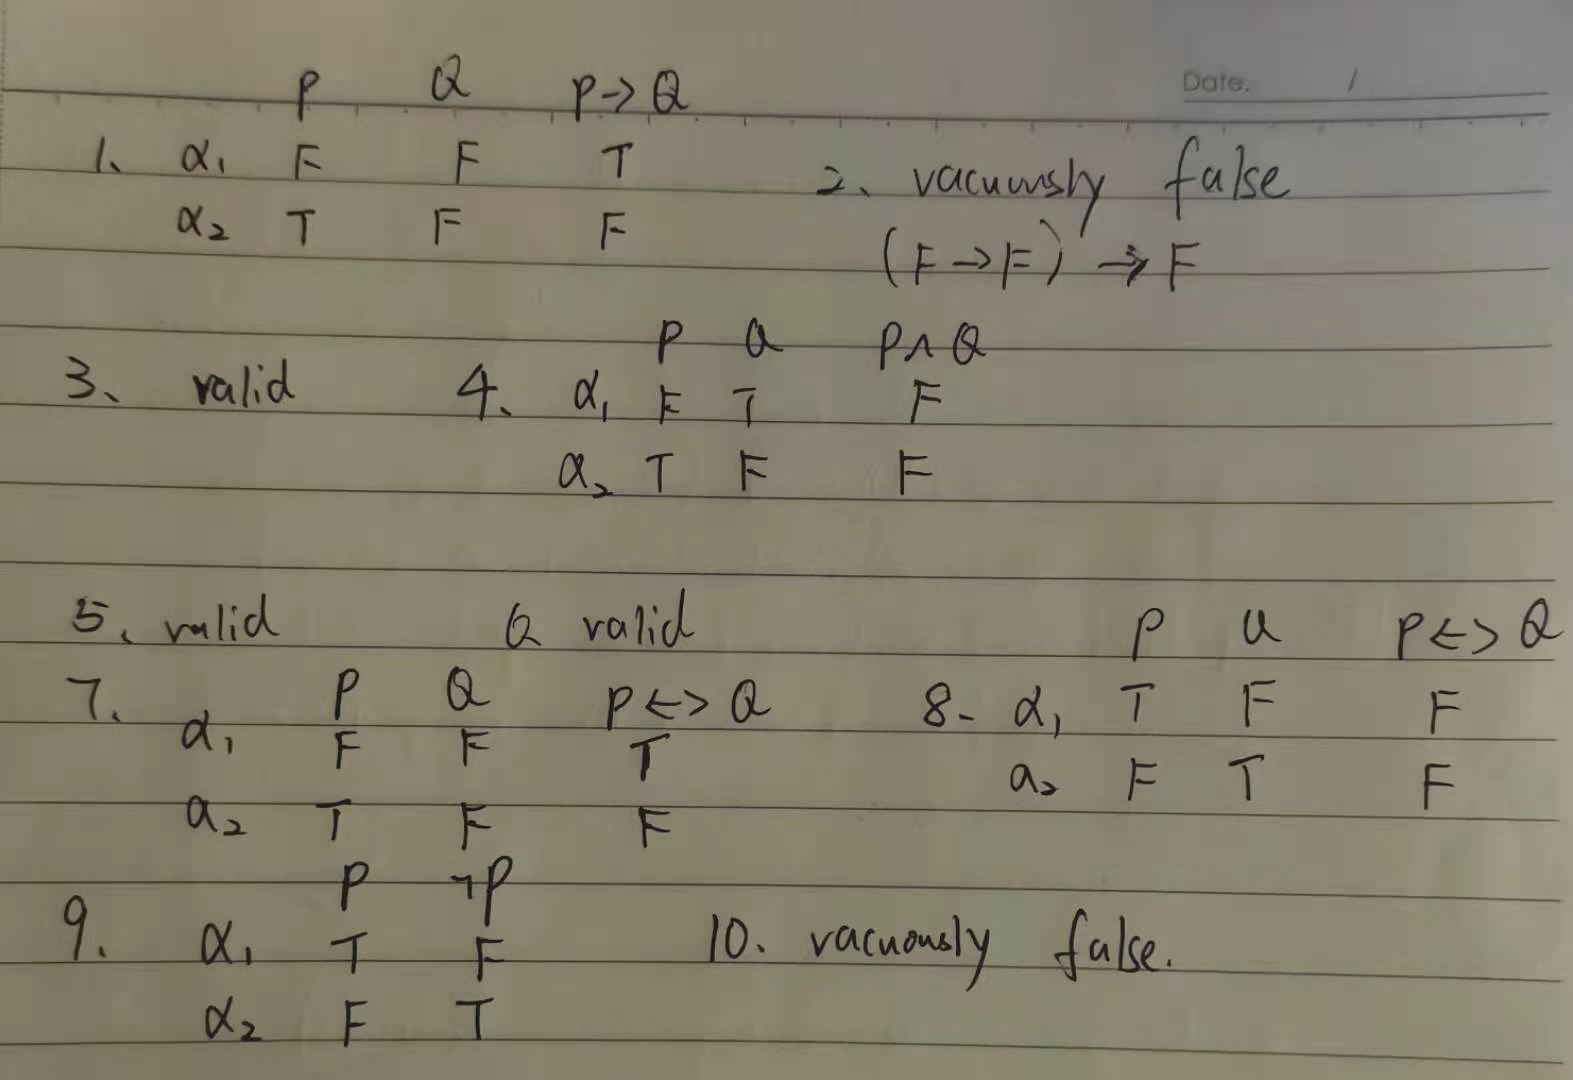 Date. /
P Q P→Q
1、 α₁ F F T
α₂ T F F
2、 vacuously false
(F→F) → F
3、 valid
4、 P Q P∧Q
α₁ F T F
α₂ T F F
5、 valid
6 valid
7. P Q P<->Q
α₁ F F T
α₂ T F F
P Q P<->Q
8- α₁ T F F
α₂ F T F
9. P ¬P
α₁ T F
α₂ F T
10. vacuously false.